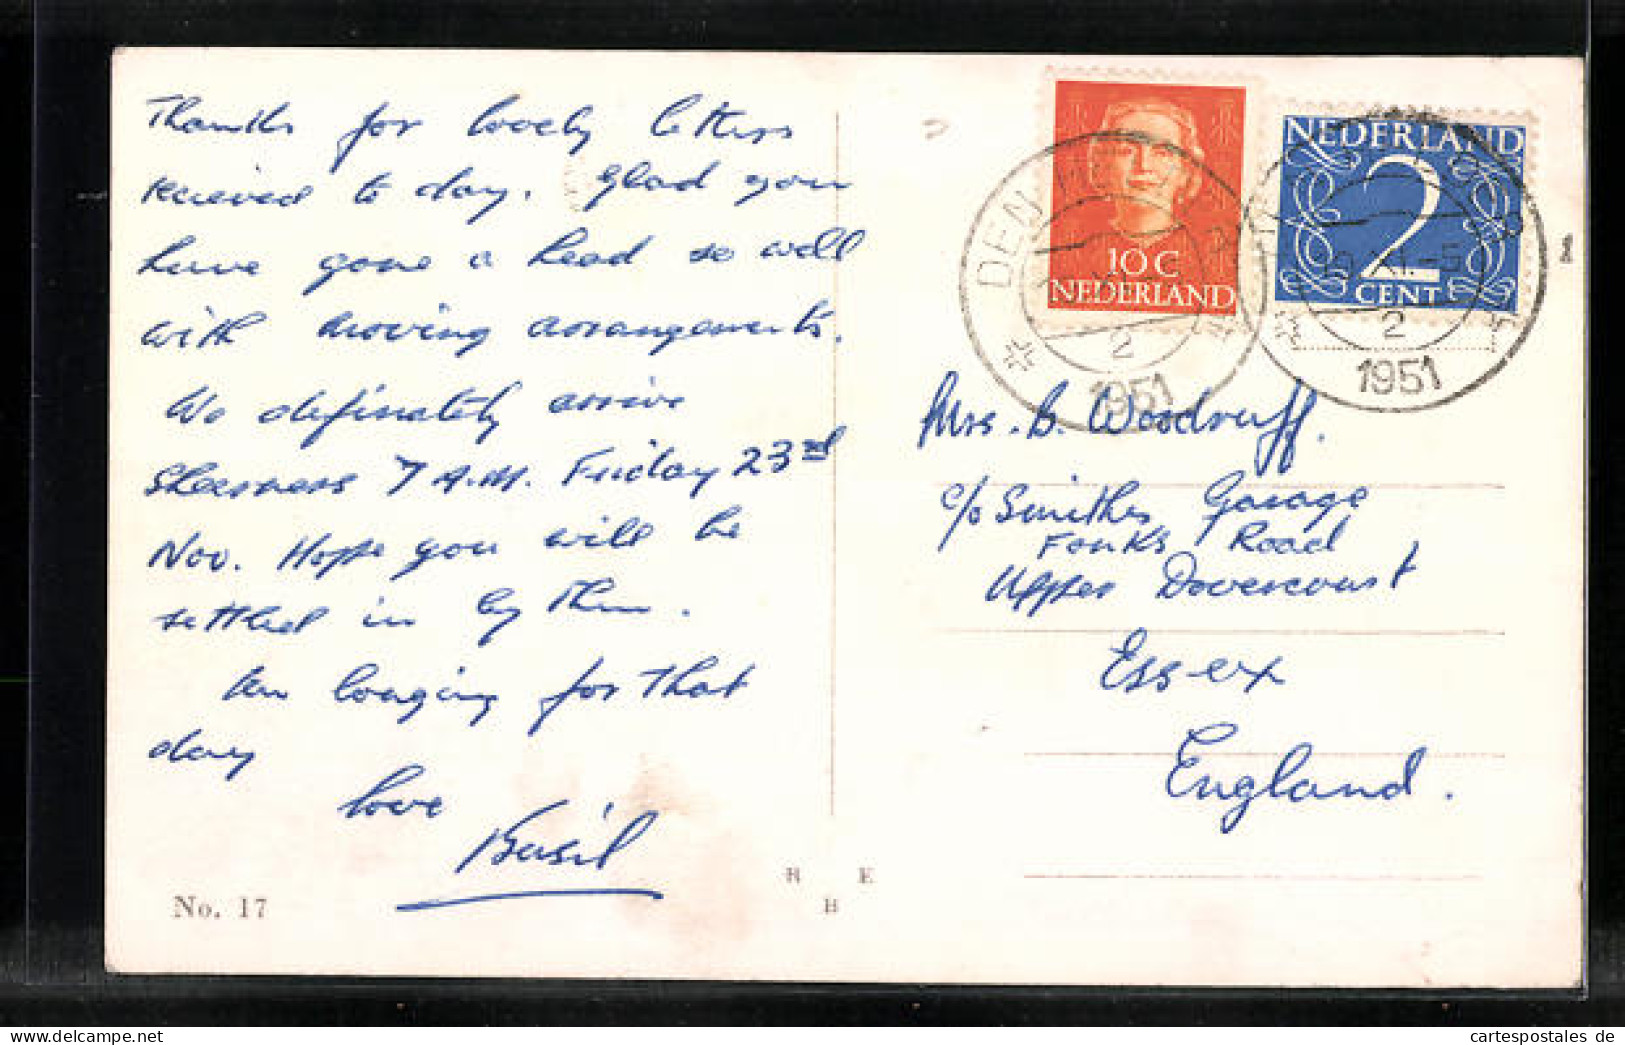 Thanks for lovely letters
recieved to day. Glad you
have gone a head so well
with moving arrangements.
We definately arrive
Sheerness 7 A.M. Friday 23rd
Nov. Hope you will be
settled in by then.
Am longing for that
day
love
Basil
No. 17
R E
H
10 C
NEDERLAND
NEDERLAND
2
CENT
DEN
2
1951
2
1951
1
Mrs. B. Woodruff.
c/o Smiths Garage
Fonks Road
Upper Dovercourt
Essex
England.
cartespostales de